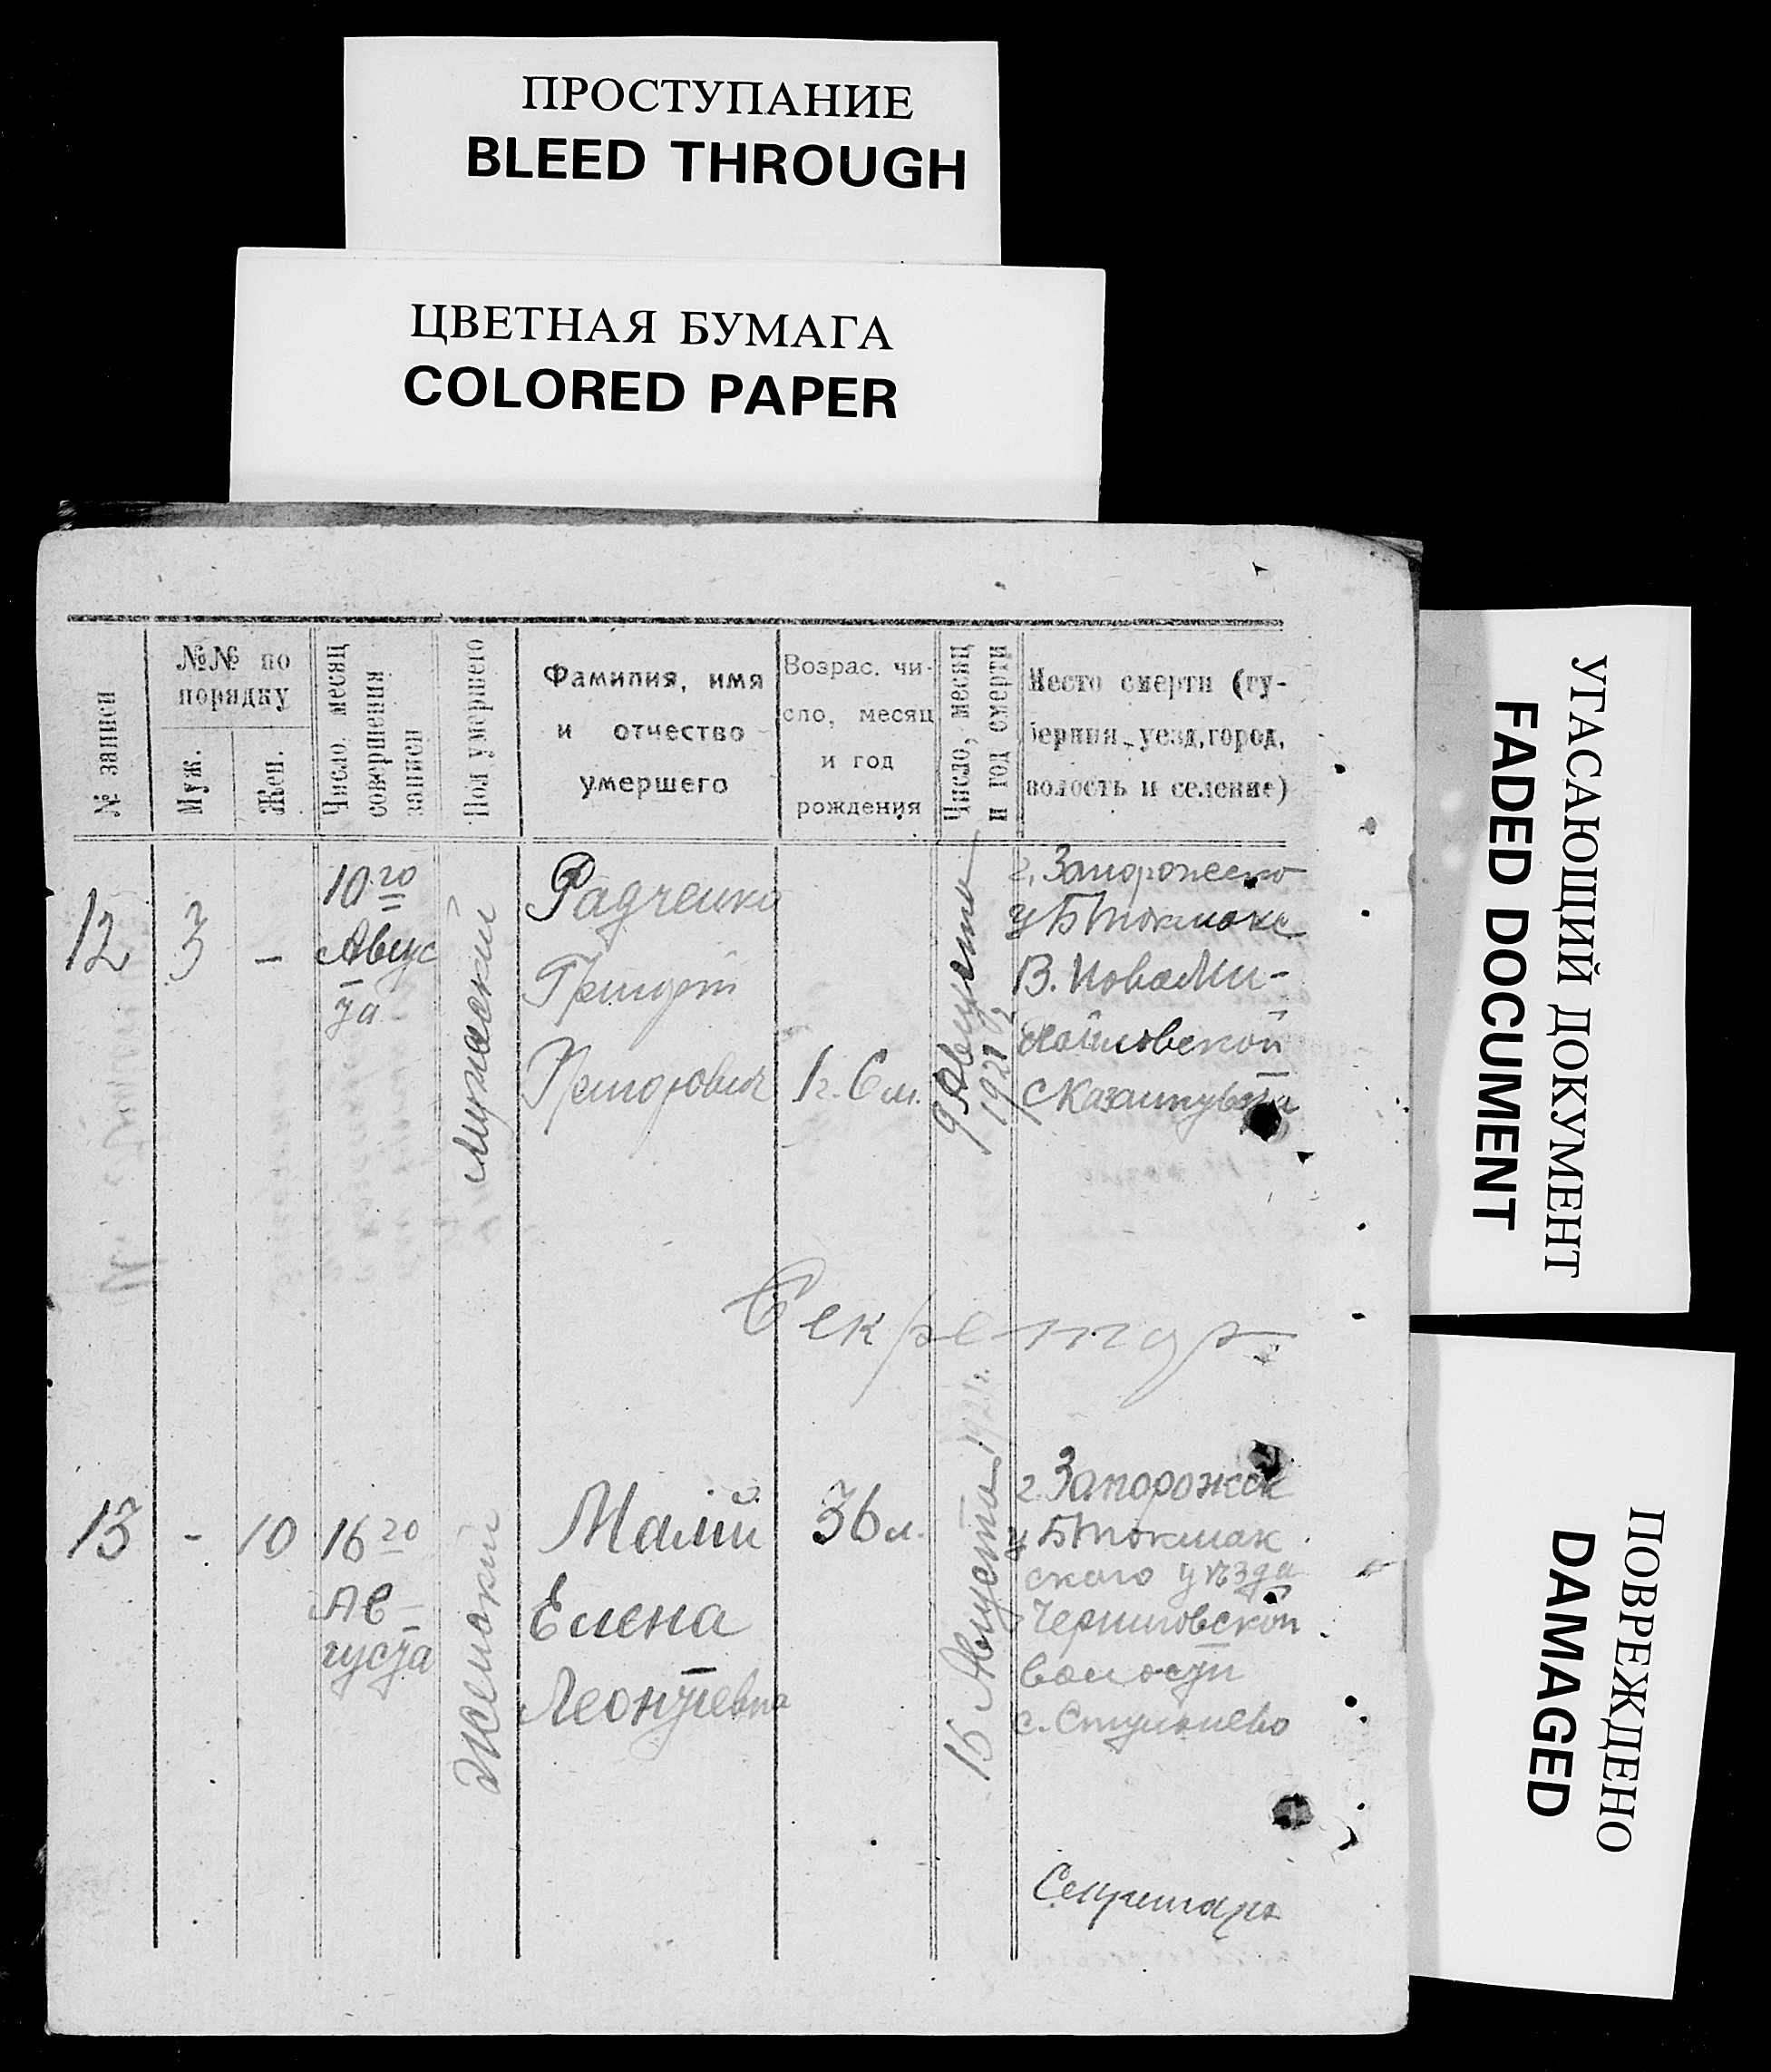 ПРОСТУПАНИЕ
BLEED THROUGH
ЦВЕТНАЯ БУМАГА
COLORED PAPER
УГАСАЮЩИЙ ДОКУМЕНТ
FADED DOCUMENT
ПОВРЕЖДЕНО
DAMAGED
№ записи
№№ по
порядку
Муж.
Жен.
Число, месяц
совершения
записи
Пол умершего
Фамилия, имя
и отчество
умершего
Возрас. чи-
сло, месяц
и год
рождения
Число, месяц
и год смерти
Место смерти (гу-
берния, уезд, город,
волость и селение)
12
3
-
10 го
Авгус
та
мужской
Радченко
Григорий
Григорович
1 г. 6 м.
9 Августа
1921 г.
г. Запорожско
у Б Токмакс
В. Нова Ми-
хайловской
с
Секретар
13
-
10
16 го
Ав-
густа
Женский
Малій
Елена
Леонтіевна
36 л.
16 Августа 1921 г.
г. Запорожск
у Б Токмак
ского уѣзда
Черниговской
волости
с.
Секретарь